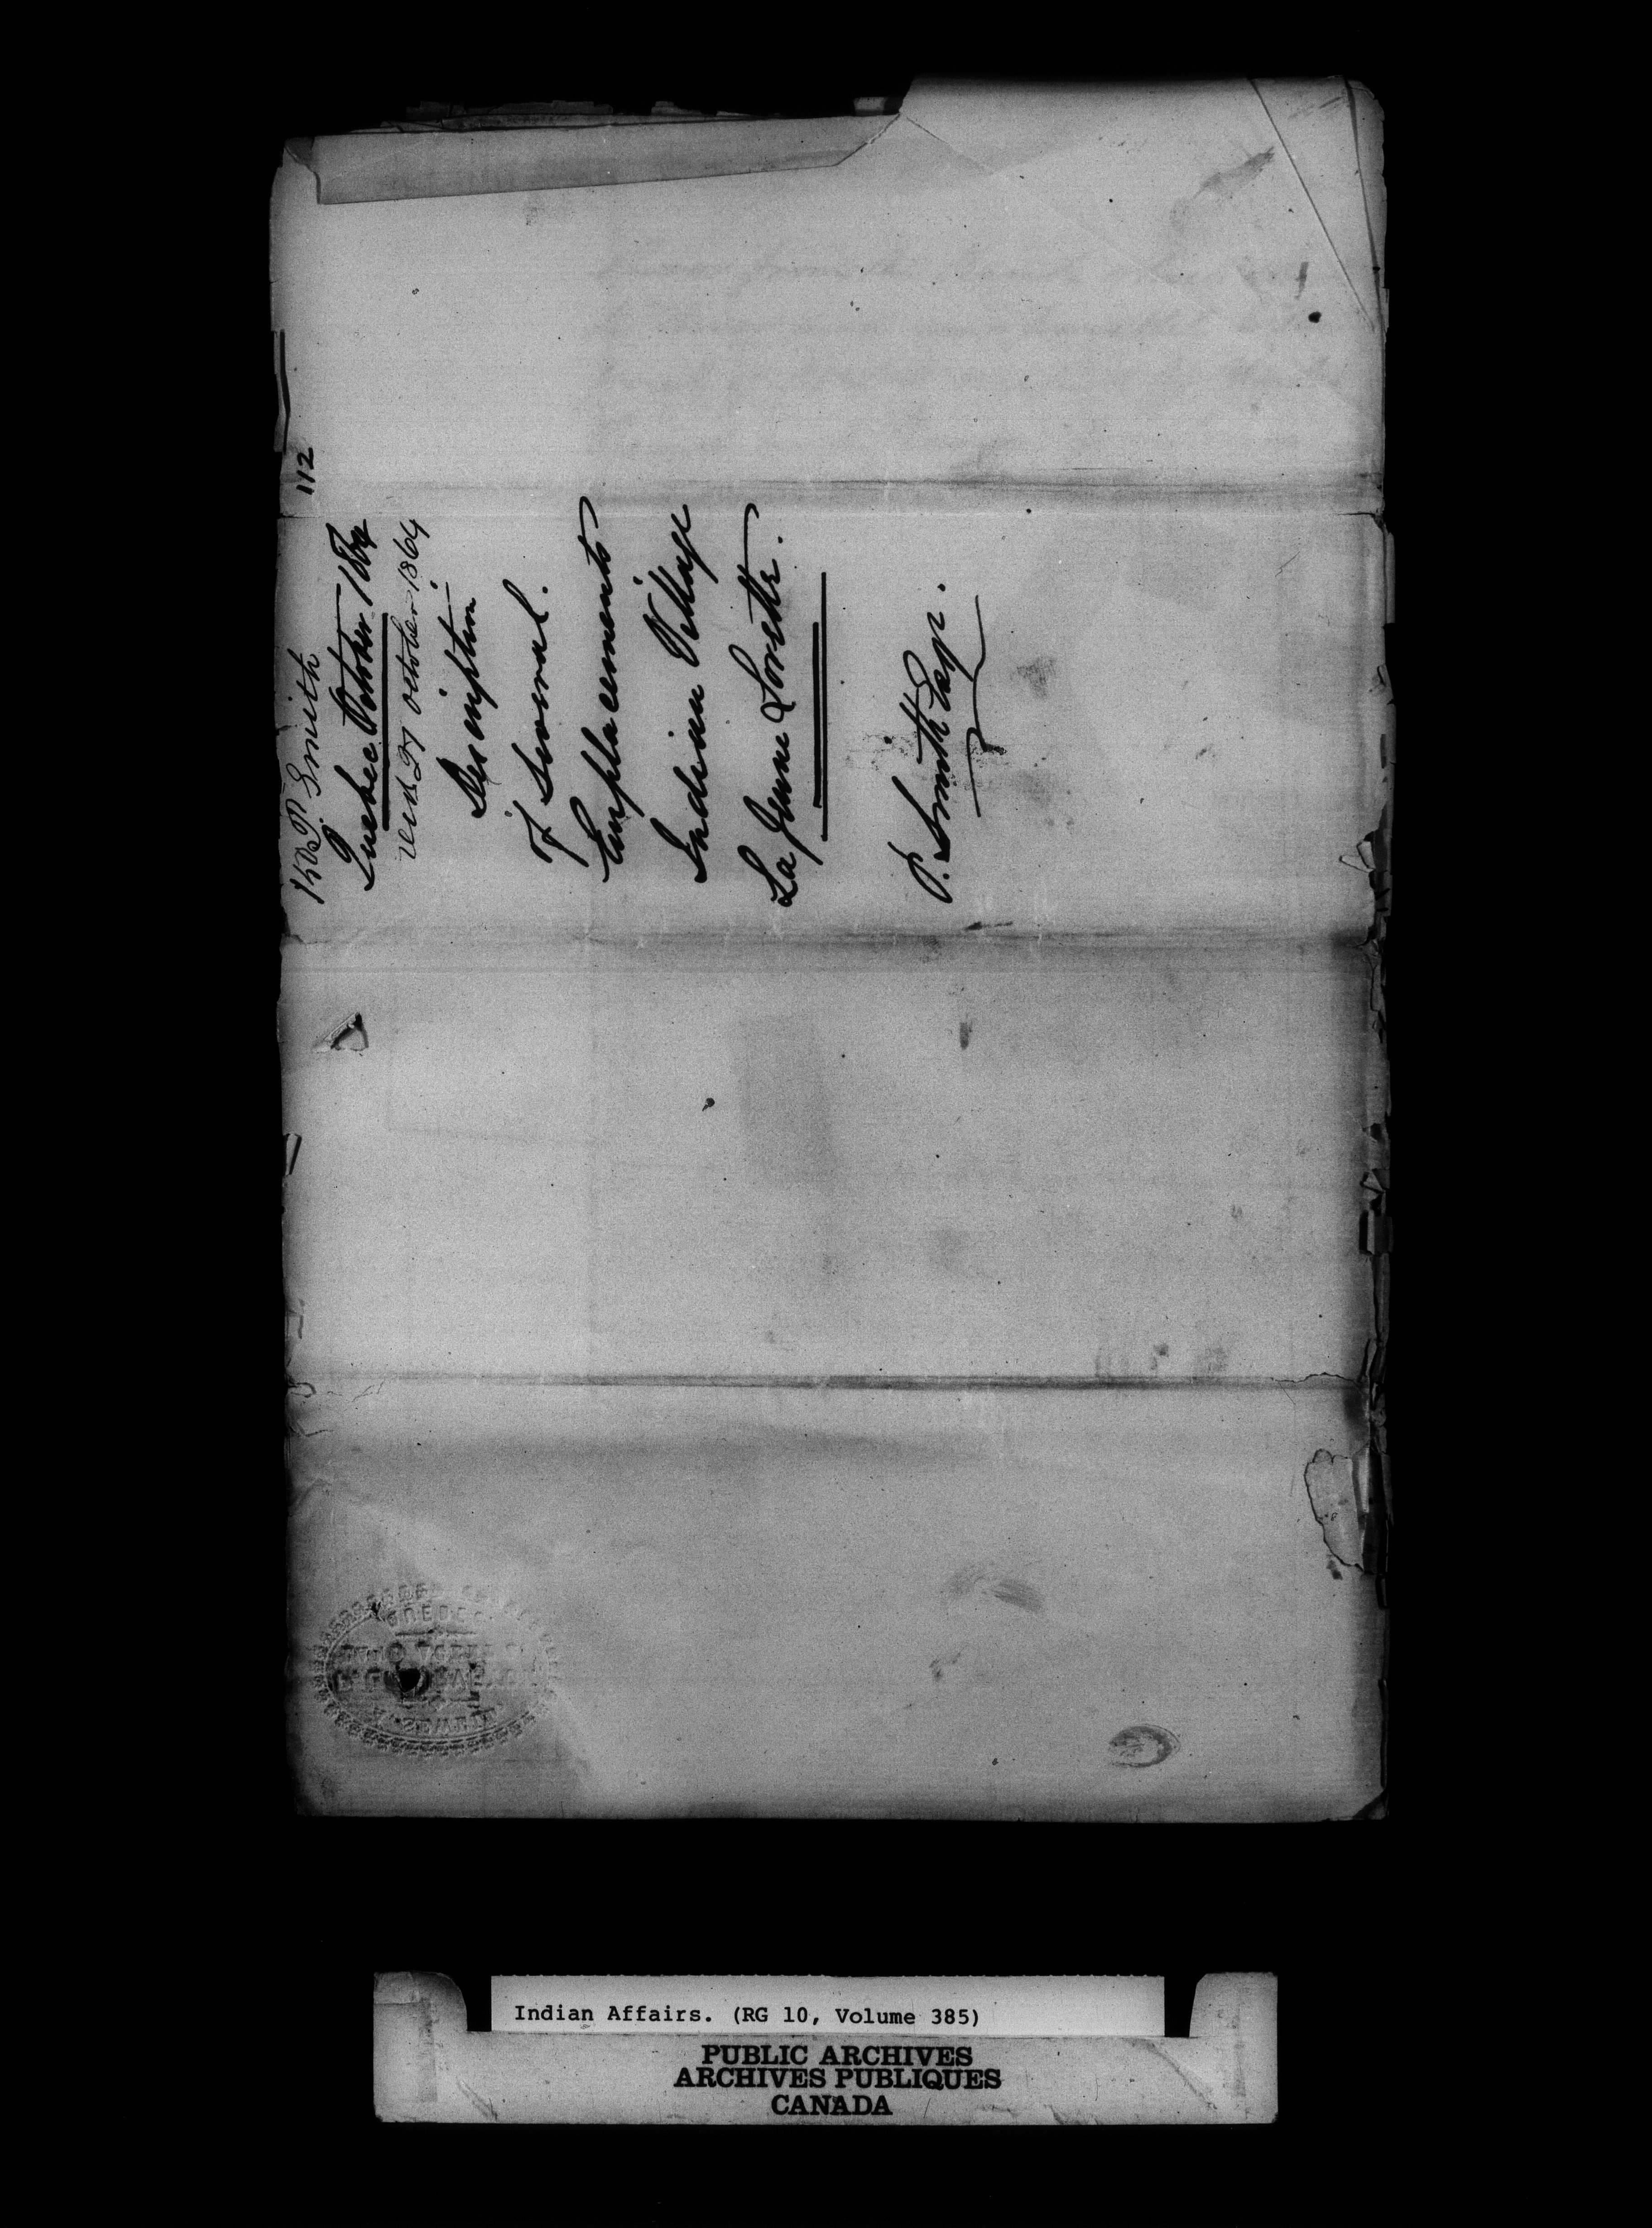 112
P. Smith
Quebec October 1864
Recd 27 October 1864
Description
of Several
Emplacements
Indian Village
La Jeune Lorette.
P. Smith Esqr.
QUEBEC
Indian Affairs. (RG 10, Volume 385)
PUBLIC ARCHIVES
ARCHIVES PUBLIQUES
CANADA